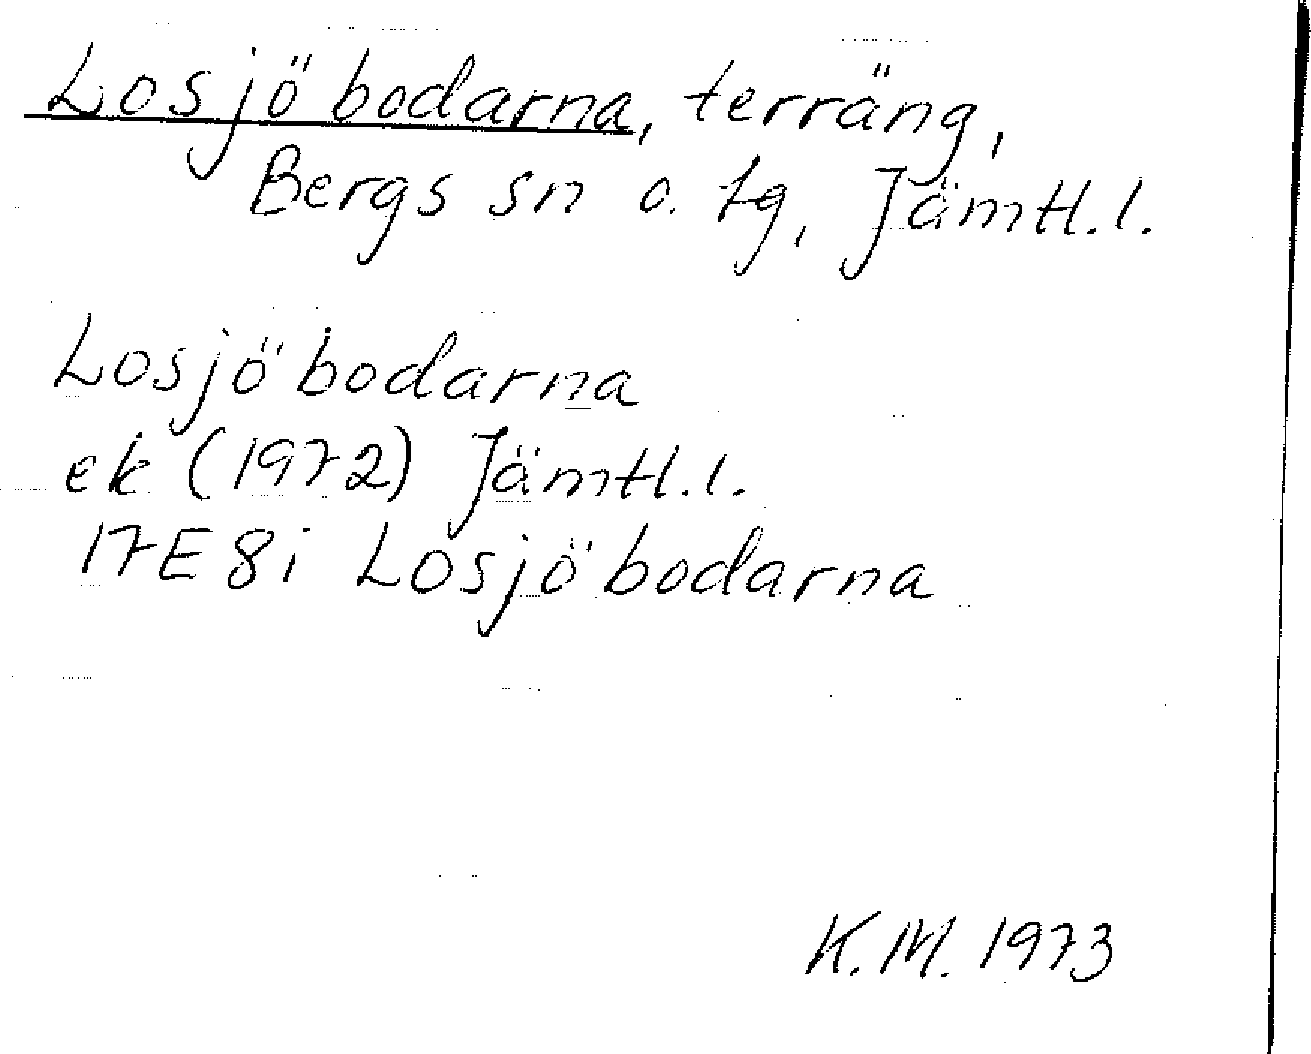 Losjöbodarna, terräng,
Bergs sn o. tg, Jämtl.l.
Losjöbodarna
ek (1972) Jämtl.l.
17E8i Losjöbodarna
K.M. 1973